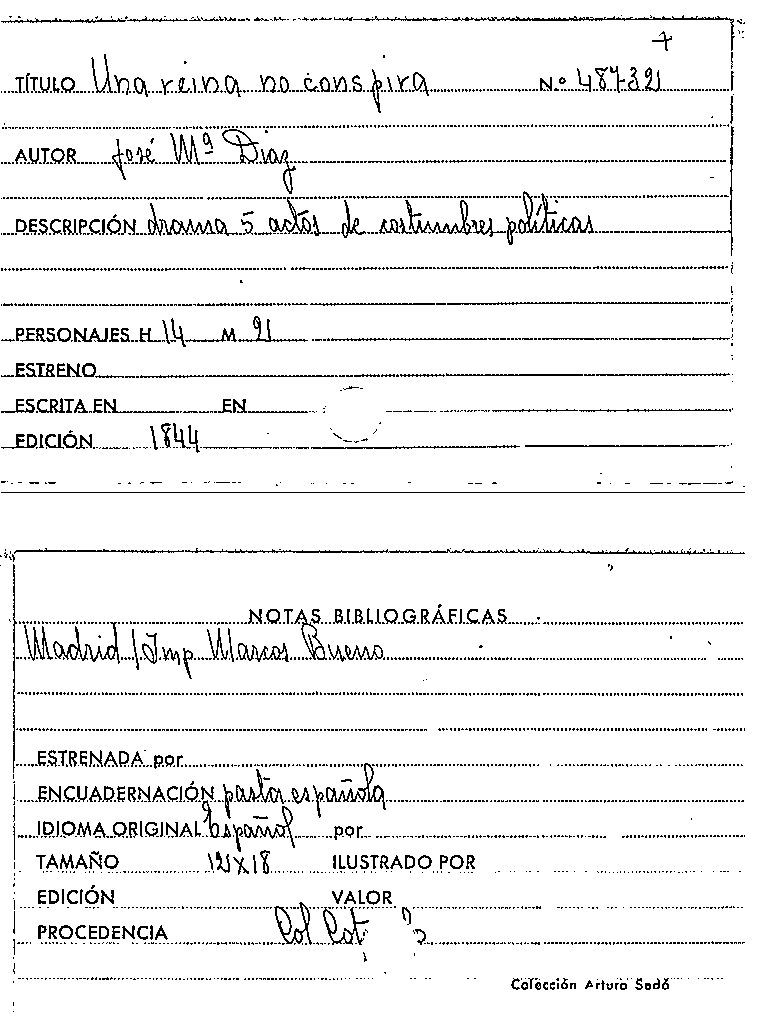 TÍTULO Una reina no conspira N.º 487-32
AUTOR José Mª Diaz
DESCRIPCIÓN drama 5 actos de costumbres políticas
PERSONAJES H 14 M 2
ESTRENO
ESCRITA EN EN
EDICIÓN 1844
NOTAS BIBLIOGRÁFICAS
Madrid / Imp Marcos Bueno
ESTRENADA por
ENCUADERNACIÓN pasta española
IDIOMA ORIGINAL Español por
TAMAÑO 12 x 18 ILUSTRADO POR
EDICIÓN VALOR
PROCEDENCIA Col Cot
Colección Arturo Sedó